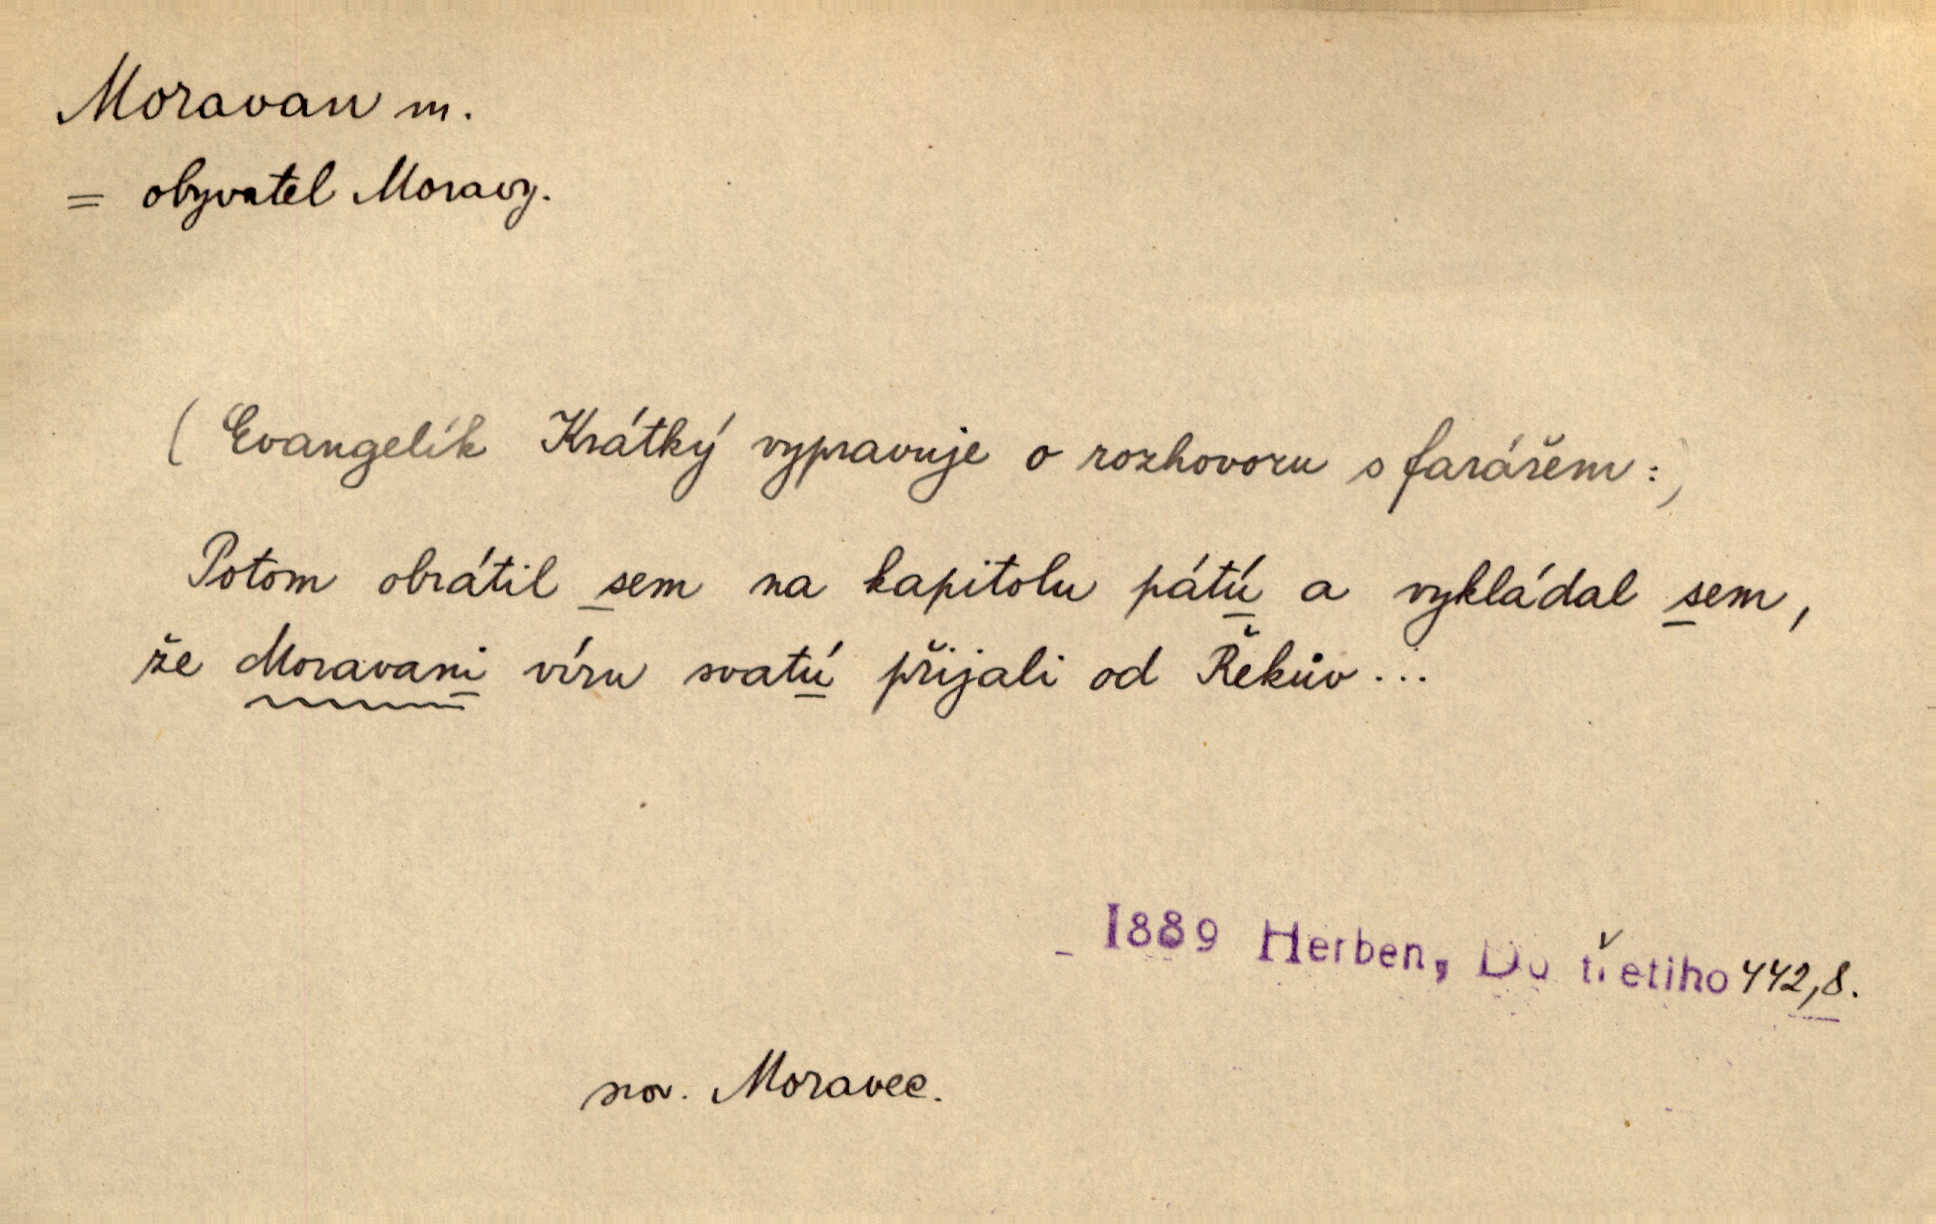 Moravan m.
= obyvatel Moravy.
(Evangelík Krátký vypravuje o rozhovoru s farářem:)
Potom obrátil sem na kapitolu pátú a vykládal sem,
že Moravani víru svatú přijali od Řekův...
1889 Herben, Do třetiho 442,8.
srov. Moravec.